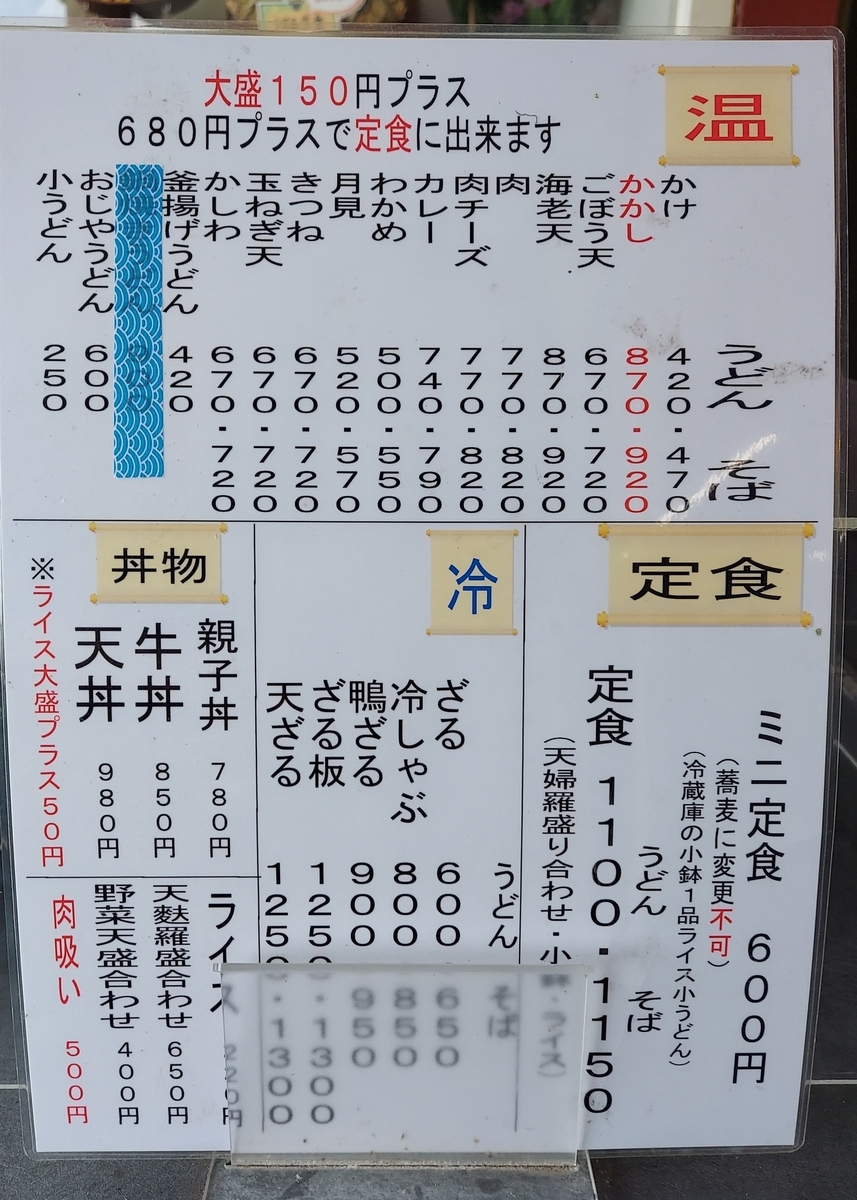 温
大盛150円プラス
680円プラスで定食に出来ます
うどん そば
かけ 420・470
かかし 870・920
ごぼう天 670・720
海老天 870・920
肉 770・820
肉チーズ 770・820
カレー 740・790
わかめ 500・550
月見 520・570
きつね 670・720
玉ねぎ天 670・720
かしわ 670・720
釜揚げうどん 420
おじやうどん 600
小うどん 250
定食
ミニ定食 600円
(蕎麦に変更不可)
(冷蔵庫の小鉢1品ライス小うどん)
うどん そば
定食 1100・1150
(天婦羅盛り合わせ・小鉢・ライス)
冷
うどん そば
ざる 600 650
冷しゃぶ 800 850
鴨ざる 900 950
ざる板 1250・1300
天ざる 1250・1300
丼物
親子丼 780円
牛丼 850円
天丼 980円
※ライス大盛プラス50円
ライス 220円
天麩羅盛合わせ 650円
野菜天盛合わせ 400円
肉吸い 500円